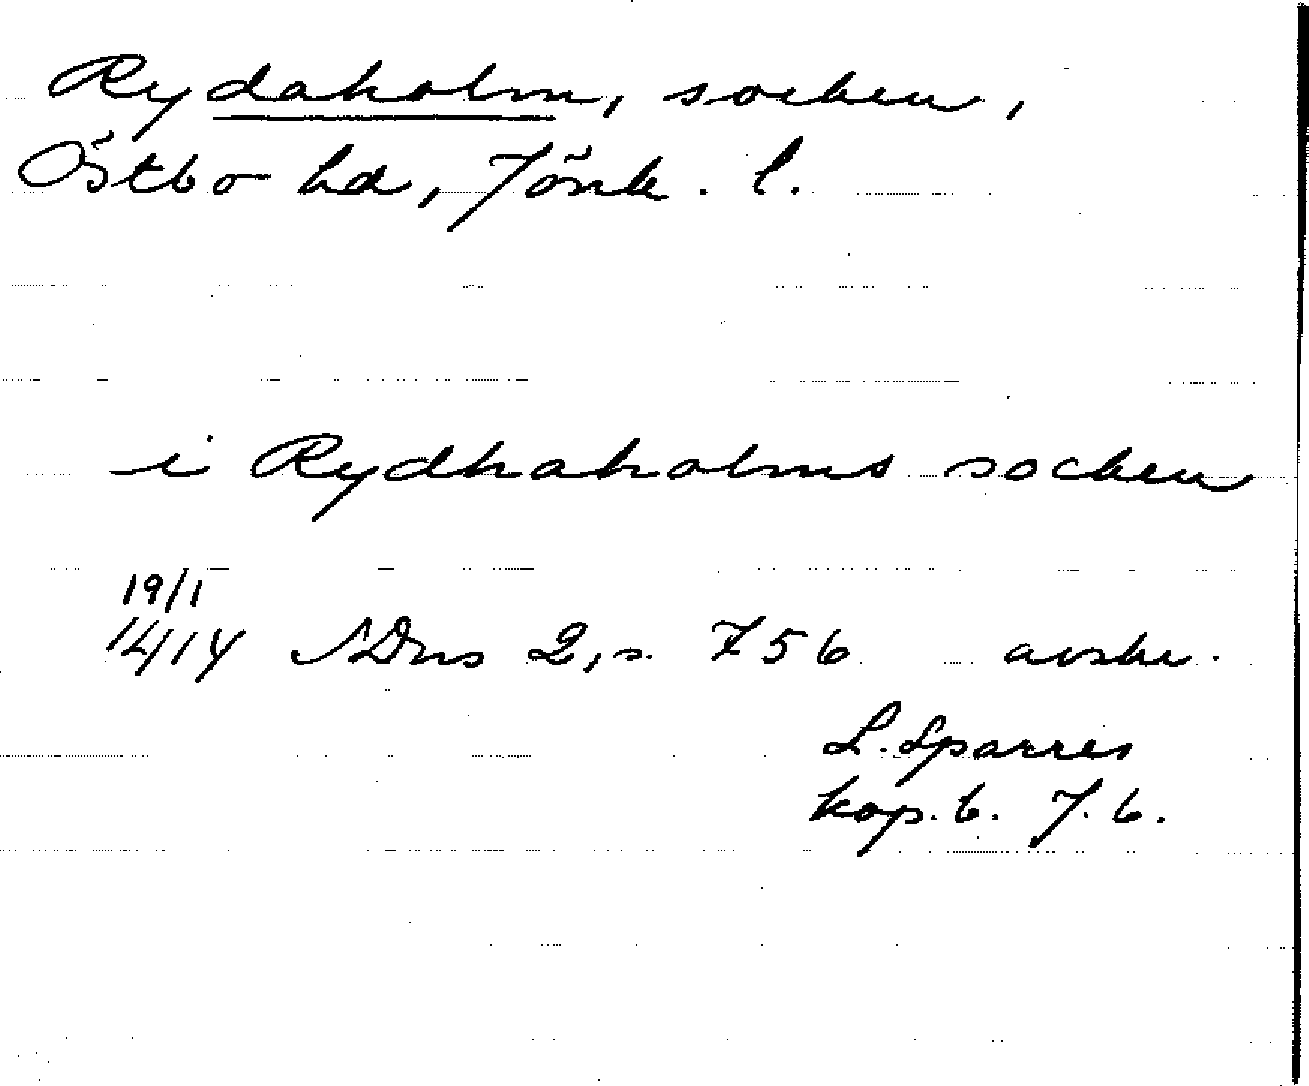 Rydaholm, socken,
Östbo hd, Jönk. l.
i Rydhaholms socken
19/1
1414 SDns 2, s. 756 avskr.
L. Sparres
kop.b. f. b.